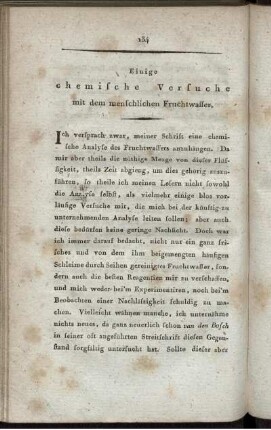 134
Einige
chemische Versuche
mit dem menschlichen Fruchtwasser.
Ich versprach zwar, meiner Schrift eine chemi-
sche Analyse des Fruchtwassers anzuhängen. Da
mir aber theils die nöthige Menge von dieser Flüs-
sigkeit, theils Zeit abgieng, um dies gehörig auszu-
führen, so theile ich meinen Lesern nicht sowohl
die Analyse selbst, als vielmehr einige blos vor-
läufige Versuche mit, die mich bei der künftig zu
unternehmenden Analyse leiten sollen; aber auch
diese bedürfen keine geringe Nachsicht. Doch war
ich immer darauf bedacht, nicht nur ein ganz fri-
sches und von dem ihm beigemengten häufigen
Schleime durch Seihen gereinigtes Fruchtwasser, son-
dern auch die besten Reagenzien mir zu verschaffen,
und mich weder beim Experimentiren, noch beim
Beobachten einer Nachlässigkeit schuldig zu ma-
chen. Vielleicht wähnen manche, ich unternähme
nichts neues, da ganz neuerlich schon van den Bosch
in seiner oft angeführten Streitschrift diesen Gegen-
stand sorgfältig untersucht hat. Sollte dieser aber